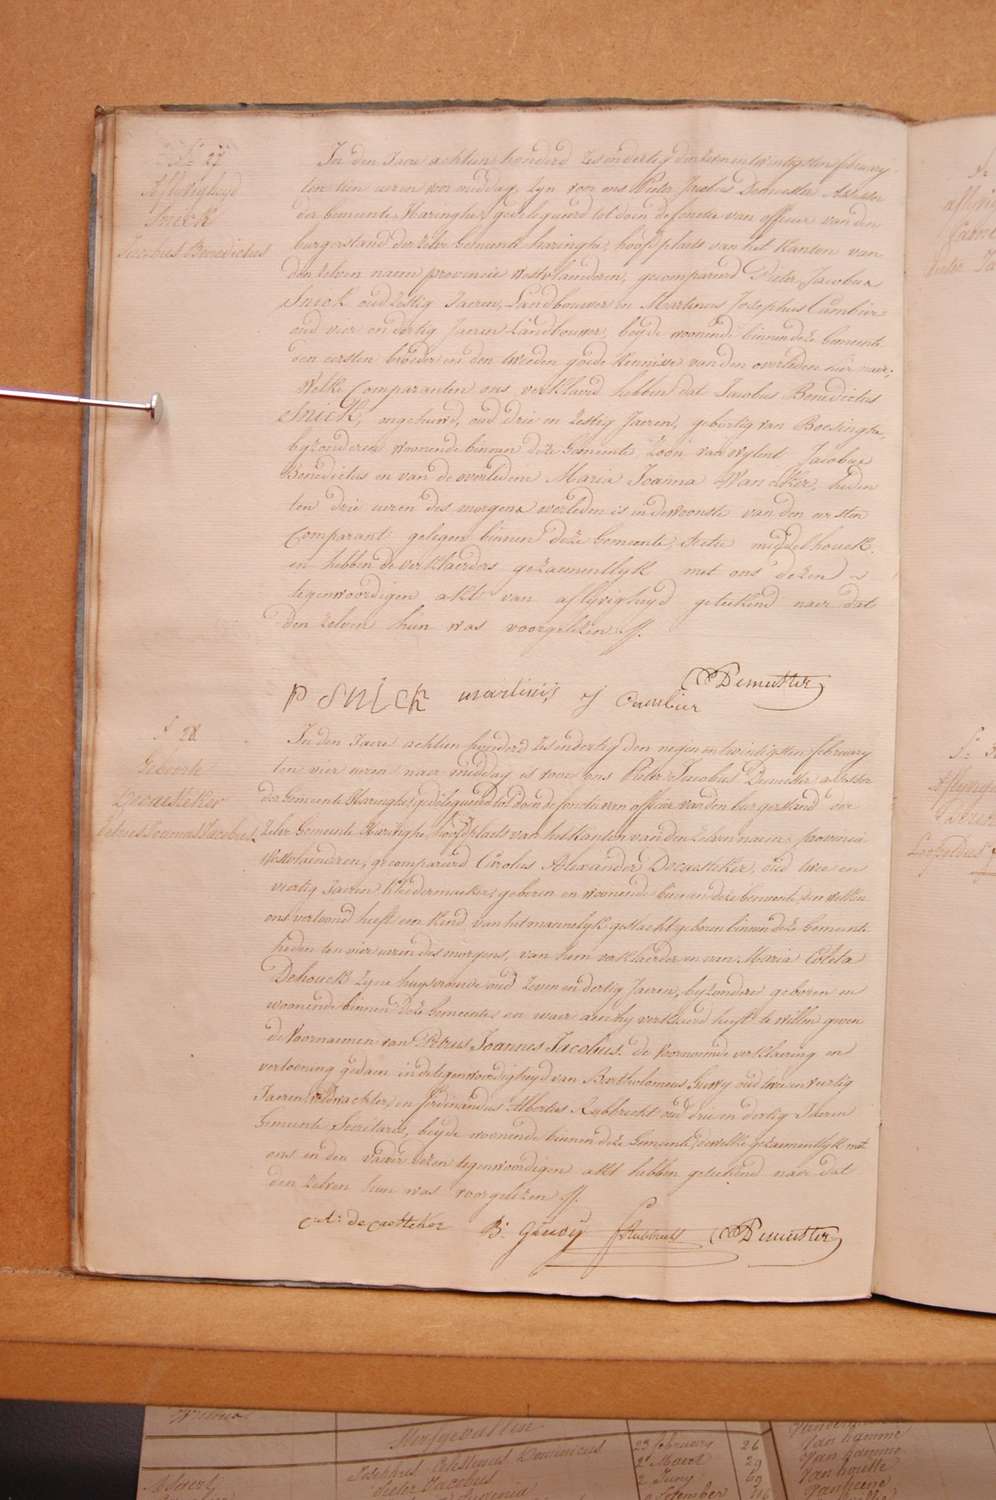 27
Aflyvigheyd
Snick
Jacobus Benedictus
In den Jaere achtien honderd zes en dertig den zeven en twintigsten february
ten tien uren voor middag, zyn voor ons Pieter Jacobus Demeester Assessor
der Gemeente Haringhe, gedelegueerd tot doen de functie van officier van den
burgerstand der zelve Gemeente haringhe, hoofdplaets van het Kanton van
den zelven naeme provincie Westvlaenderen, gecompareerd Pieter Jacobus
Snick oud zestig Jaeren, Landbouwer en Martinus Josephus Cambier
oud vier en dertig Jaeren Landbouwer, beyde woonende binnen deze Gemeente
den eersten broeder en den tweeden goede kennisse van den overleden hier naer,
Welke Comparanten ons verklaerd hebben dat Jacobus Benedictus
Snick, ongehuwd, oud drie en zestig Jaeren, gebortig van Boesinghe,
byzonderen woonende binnen deze Gemeente, zoon van wylent Jacobus
Benedictus en van de overledene Maria Joanna Van Eker, heden
ten drie uren des morgens overleden is in de woonste van den eersten
Comparant gelegen binnen deze Gemeente, Sectie middelhouck,
en hebben de verklaerders gezaementlyk met ons dezen
tegenwoordigen akt van aflyvigheyd geteekend naer dat
den zelven hun was voorgelezen
P SNICK martinus J Cambier
PDemeester
28
Geboorte
Decaesteker
Petrus Joannes Jacobus
In den Jaere achtien honderd zes en dertig den negen en twintigsten february
ten vier uren naer middag is voor ons Pieter Jacobus Demeester assessor
der Gemeente Haringhe gedelegueerd tot doen de functie van officier van den burgerstand der
zelve Gemeente Haringhe, hoofdplaets van het Kanton van den zelven naem, provincie
Westvlaenderen, gecompareerd Carolus Alexander Decaesteker, oud twee en
viertig Jaeren Kleermaeker, geboren en woonende binnen deze Gemeente, den welken
ons vertoond heeft een kind van het mannelyk geslacht geboren binnen deze Gemeente
heden ten vier uren des morgens, van hem verklaerder en van Maria Coleta
Dehouck zyne huysvrouwe oud zeven en dertig Jaeren, byzondere geboren en
woonende binnen deze Gemeente, en waer aen hy verklaerd heeft te willen geven
de Voornaemen van Petrus Joannes Jacobus. de Voornoemde verklaering en
vertooning gedaen in de tegenwoordigheyd van Bartholomeus Geuvy oud twee en viertig
Jaeren veldwachter, en ferdinandus Albertus Rubbrecht oud drie en dertig Jaeren
Gemeente Secretaris, beyde woonende binnen deze Gemeente, dewelke gezaementlyk met
ons en den vader dezen tegenwoordigen akt hebben geteekend naer dat
den zelven hun was voorgelezen
de Caesteker B. geuvy Rubbrecht PDemeester
Leopoldus
23 february 26
2 Maert 29
2 Juny 69
Vanhamme
Van houtte